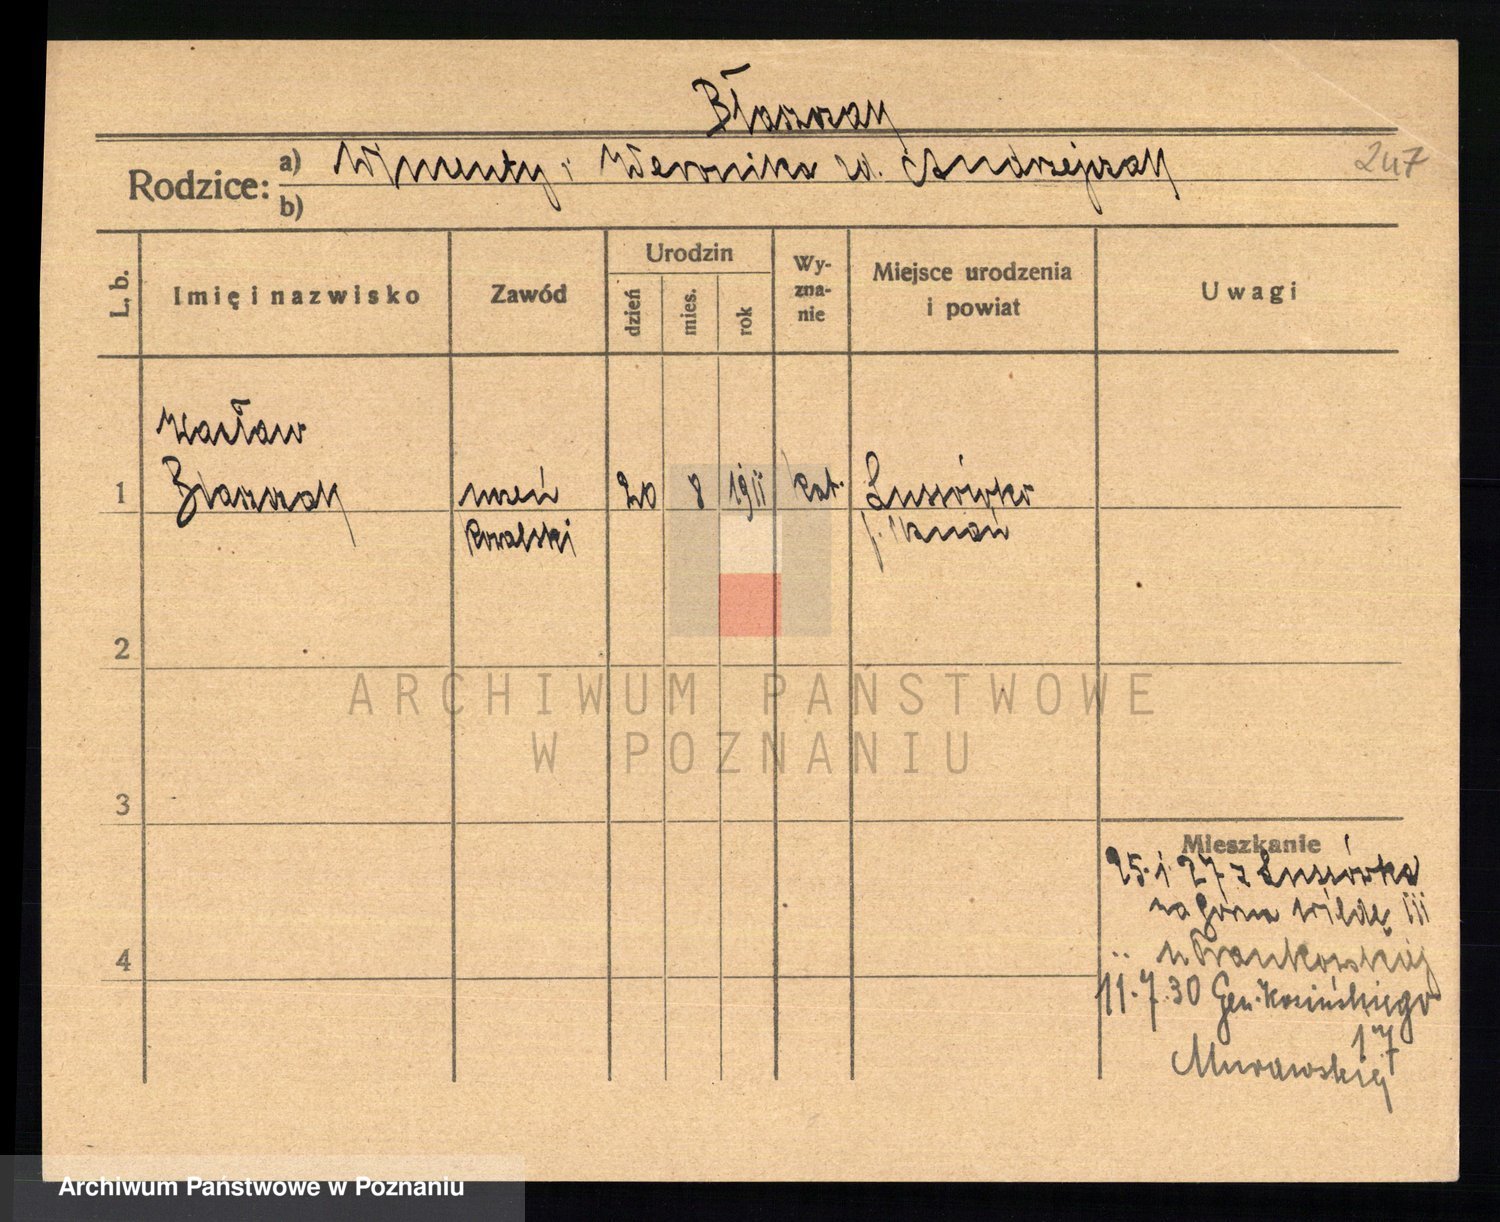 Błaszczak
247
Rodzice: a) Wincenty i Weronika zd. Andrzejczak
b)
L. b.
Imię i nazwisko
Zawód
Urodzin
dzień
mies.
rok
Wy-
zna-
nie
Miejsce urodzenia
i powiat
Uwagi
Wacław
1 Błaszczak uczeń 20 8 1911 kat. Lusówko
kowalski p. Poznań
2
ARCHIWUM PAŃSTWOWE
W POZNANIU
3
Mieszkanie
25.1.27 z Lusówka
na Górna Wilda III
u Frankowskiej
11.7.30 Gen. Kosińskiego
17
Murawskiej
4
Archiwum Państwowe w Poznaniu